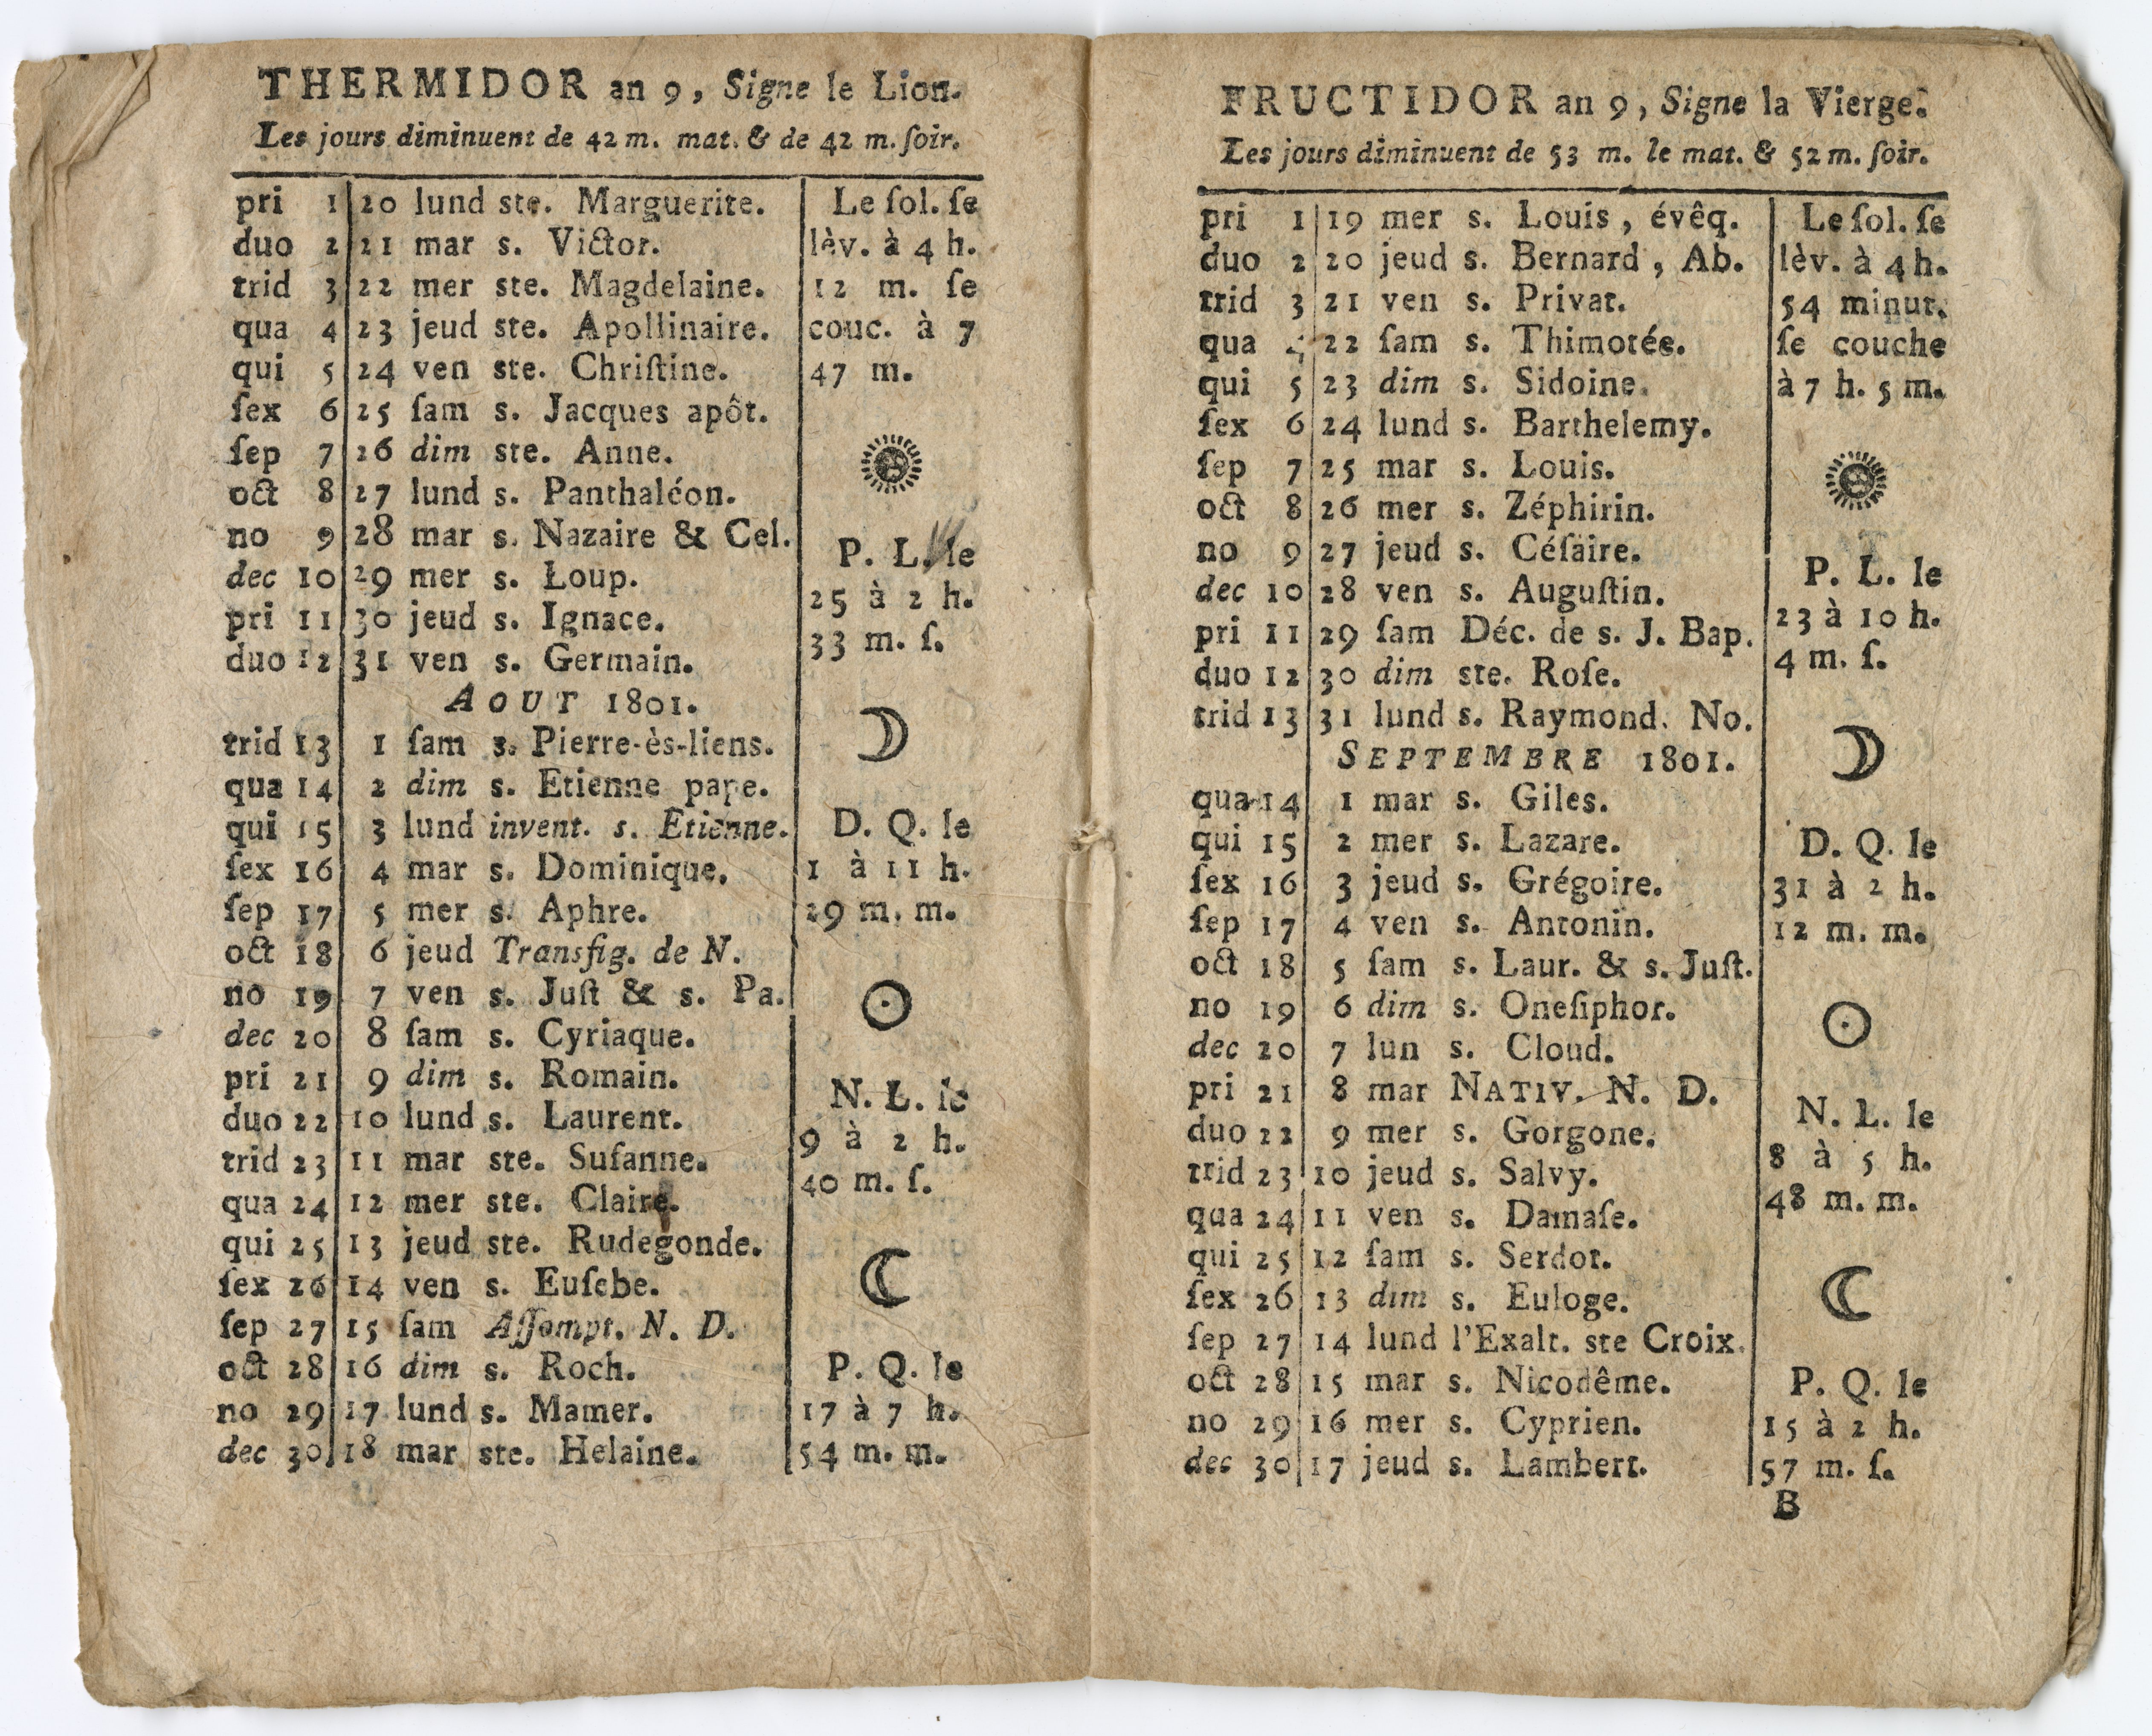 THERMIDOR an 9, Signe le Lion.
Les jours diminuent de 42 m. mat. & de 42 m. ſoir.
pri 1 20 lund ste. Marguerite.
duo 2 21 mar s. Victor.
trid 3 22 mer ste. Magdelaine.
qua 4 23 jeud ste. Apollinaire.
qui 5 24 ven ste. Chriſtine.
ſex 6 25 ſam s. Jacques apôt.
ſep 7 26 dim ste. Anne.
oct 8 27 lund s. Panthaléon.
no 9 28 mar s. Nazaire & Cel.
dec 10 29 mer s. Loup.
pri 11 30 jeud s. Ignace.
duo 12 31 ven s. Germain.
AOUT 1801.
trid 13 1 ſam s. Pierre-ès-liens.
qua 14 2 dim s. Etienne pape.
qui 15 3 lund invent. s. Etienne.
ſex 16 4 mar s. Dominique.
ſep 17 5 mer s. Aphre.
oct 18 6 jeud Transfig. de N.
no 19 7 ven s. Juſt & s. Pa.
dec 20 8 ſam s. Cyriaque.
pri 21 9 dim s. Romain.
duo 22 10 lund s. Laurent.
trid 23 11 mar ste. Suſanne.
qua 24 12 mer ste. Claire.
qui 25 13 jeud ste. Rudegonde.
ſex 26 14 ven s. Euſebe.
ſep 27 15 ſam Aſſompt. N. D.
oct 28 16 dim s. Roch.
no 29 17 lund s. Mamer.
dec 30 18 mar ste. Helaine.
Le ſol. ſe
lèv. à 4 h.
12 m. ſe
couc. à 7
47 m.
P. L. le
25 à 2 h.
33 m. ſ.
D. Q. le
1 à 11 h.
29 m. m.
N. L. le
9 à 2 h.
40 m. ſ.
P. Q. le
17 à 7 h.
54 m. m.
FRUCTIDOR an 9, Signe la Vierge.
Les jours diminuent de 53 m. le mat. & 52 m. ſoir.
pri 1 19 mer s. Louis, évêq.
duo 2 20 jeud s. Bernard, Ab.
trid 3 21 ven s. Privat.
qua 4 22 ſam s. Thimotée.
qui 5 23 dim s. Sidoine.
ſex 6 24 lund s. Barthelemy.
ſep 7 25 mar s. Louis.
oct 8 26 mer s. Zéphirin.
no 9 27 jeud s. Céſaire.
dec 10 28 ven s. Auguſtin.
pri 11 29 ſam Déc. de s. J. Bap.
duo 12 30 dim ste. Roſe.
trid 13 31 lund s. Raymond. No.
SEPTEMBRE 1801.
qua 14 1 mar s. Giles.
qui 15 2 mer s. Lazare.
ſex 16 3 jeud s. Grégoire.
ſep 17 4 ven s. Antonin.
oct 18 5 ſam s. Laur. & s. Juſt.
no 19 6 dim s. Oneſiphor.
dec 20 7 lun s. Cloud.
pri 21 8 mar NATIV. N. D.
duo 22 9 mer s. Gorgone.
trid 23 10 jeud s. Salvy.
qua 24 11 ven s. Damaſe.
qui 25 12 ſam s. Serdot.
ſex 26 13 dim s. Euloge.
ſep 27 14 lund l'Exalt. ste Croix.
oct 28 15 mar s. Nicodême.
no 29 16 mer s. Cyprien.
dec 30 17 jeud s. Lambert.
Le ſol. ſe
lèv. à 4 h.
54 minut.
ſe couche
à 7 h. 5 m.
P. L. le
23 à 10 h.
4 m. ſ.
D. Q. le
31 à 2 h.
12 m. m.
N. L. le
8 à 5 h.
48 m. m.
P. Q. le
15 à 2 h.
57 m. ſ.
B